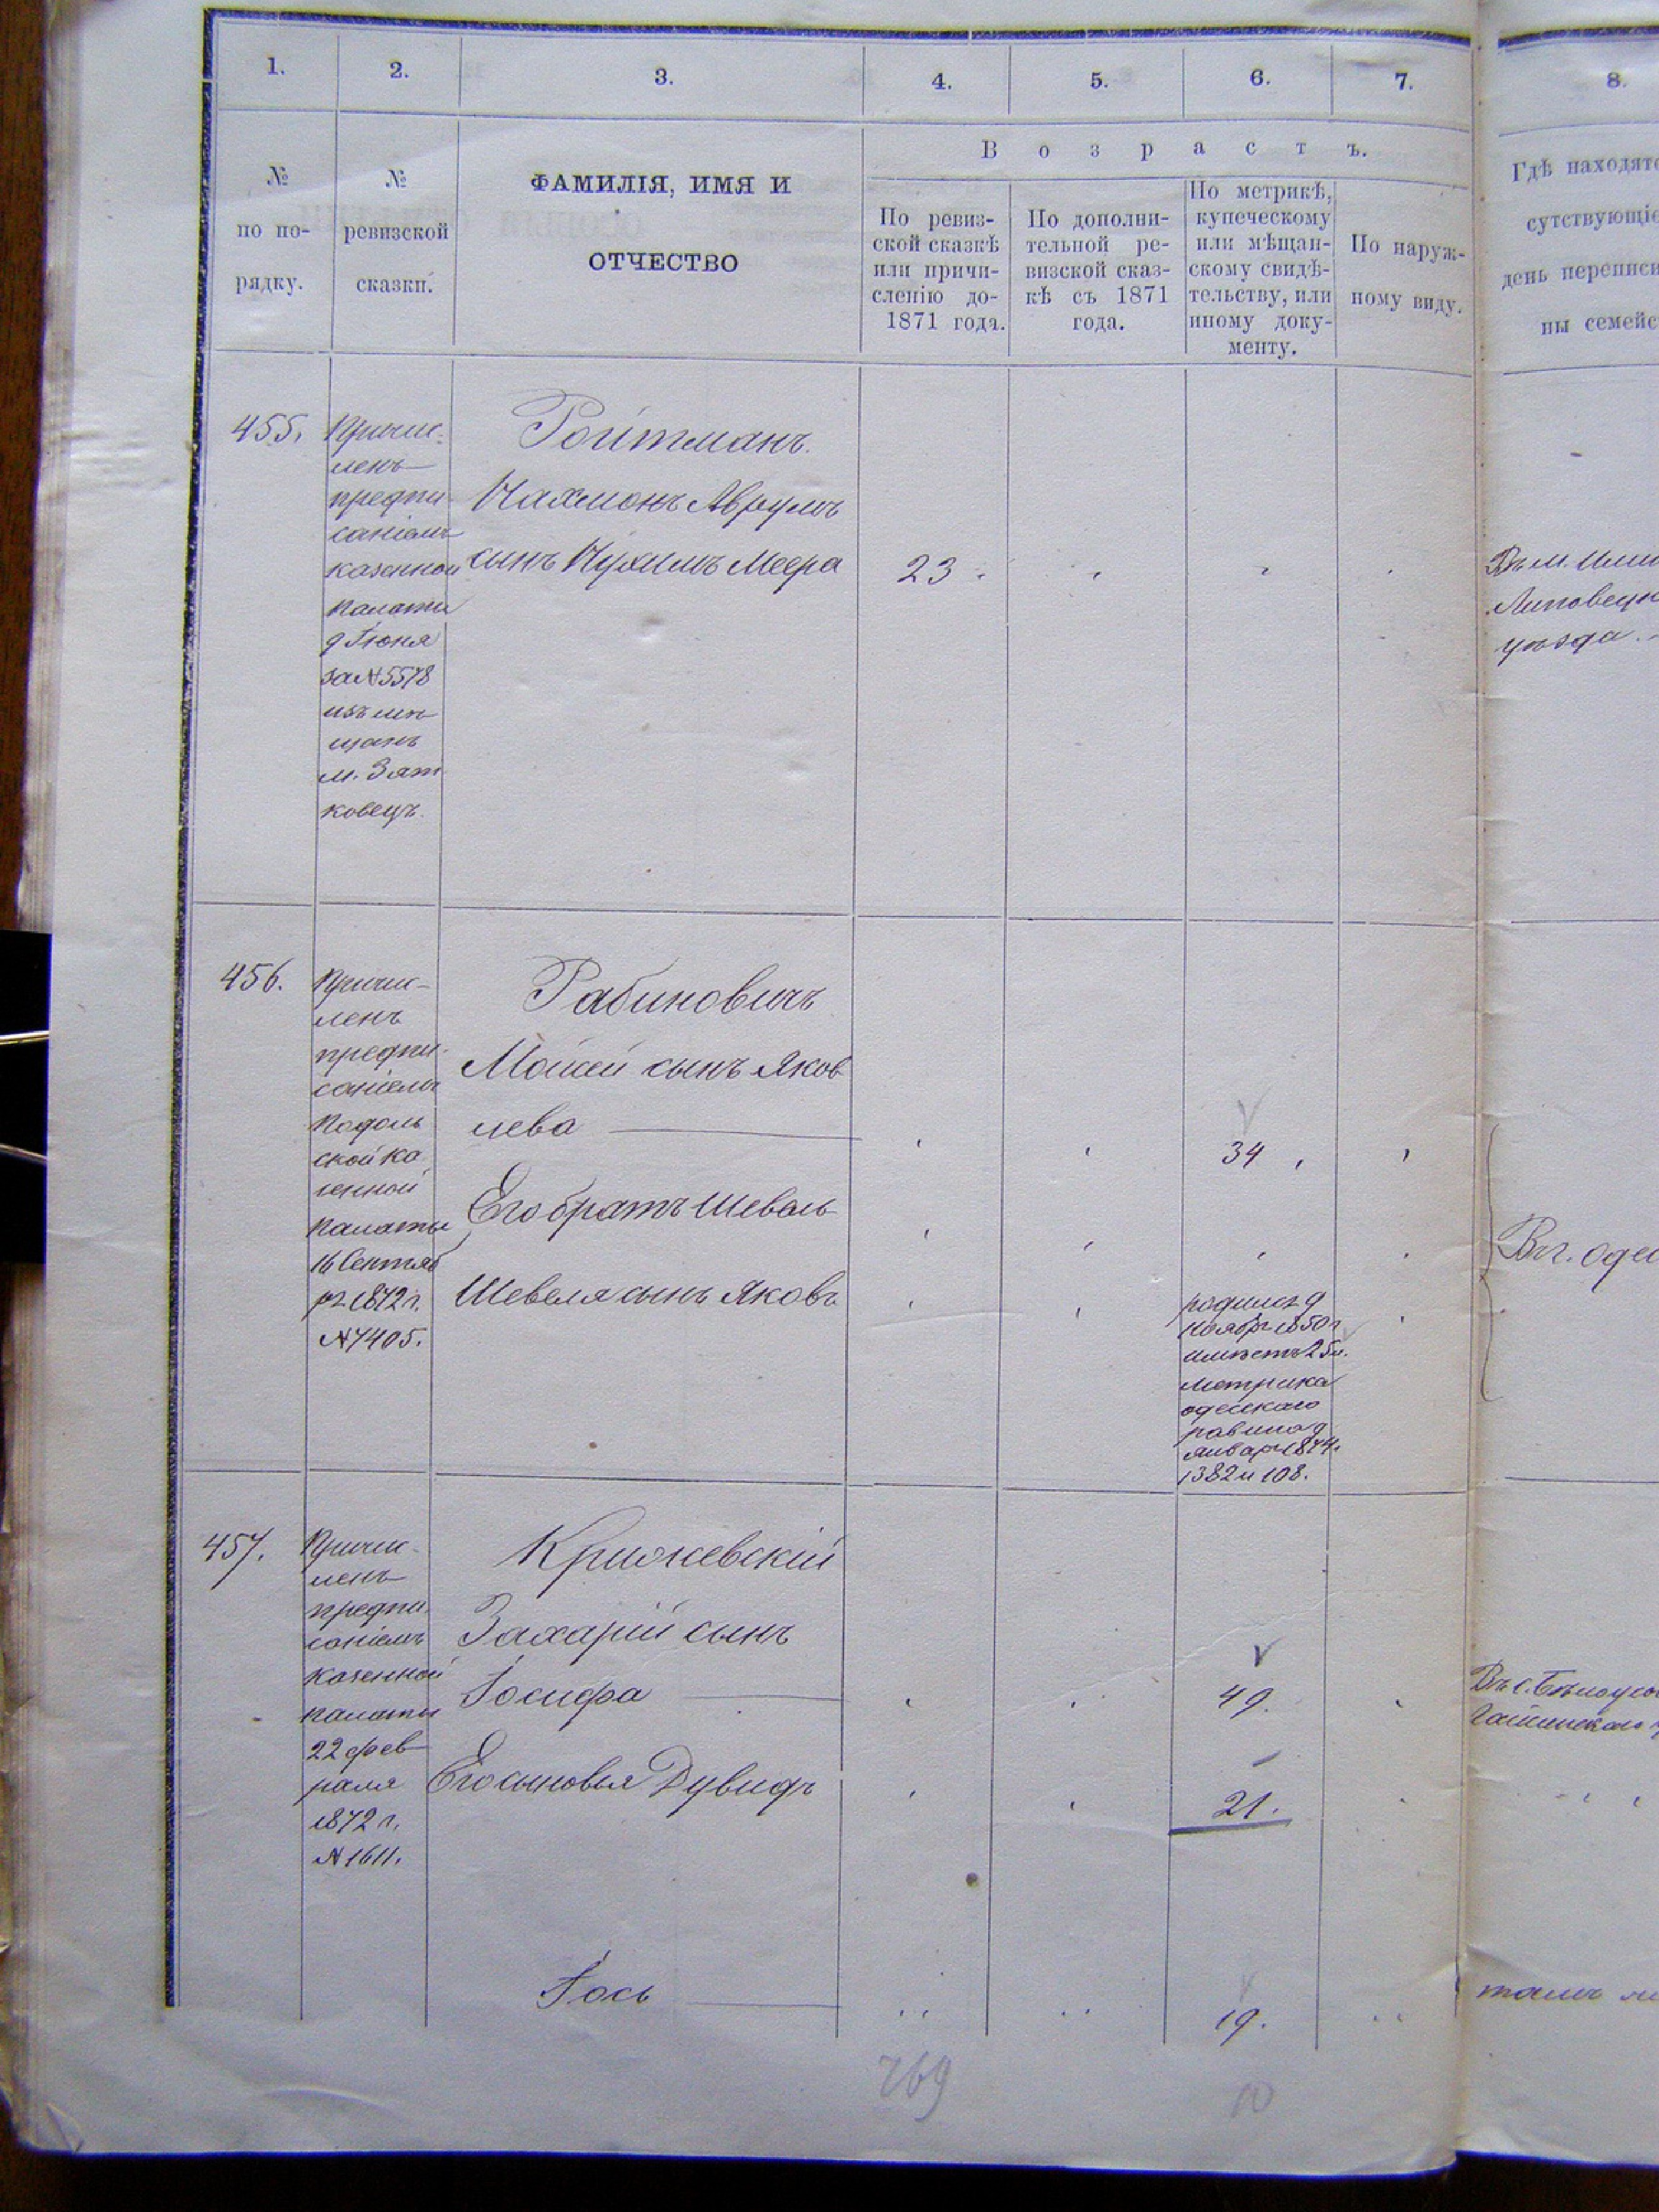 1.
2.
3.
4.
5.
6.
7.
8.
№
по по-
рядку.
№
ревизской
сказки.
ФАМИЛІЯ, ИМЯ И
ОТЧЕСТВО
Возрастъ.
По ревиз-
ской сказкѣ
или причи-
сленію до-
1871 года.
По дополни-
тельной ре-
визской сказ-
кѣ съ 1871
года.
По метрикѣ,
купеческому
или мѣщан-
скому свидѣ-
тельству, или
иному доку-
менту.
По наруж-
ному виду.
Гдѣ находятс
сутствующіе
день переписи
ны семейс
455.
Причис-
ленъ
предпи
саніемъ
казенной
палаты
9 Іюня
за N 5578
изъ мѣ
щанъ
м. Зят
ковецъ.
Ройтманъ.
Нахмонъ Аврумъ
сынъ Нухимъ Меера
23
Въ м.
Липовецк
уѣзда.
456.
Причис-
ленъ
предпи-
саніемъ
Подоль
ской ка
зенной
палаты
16 Сентяб
ря 1872 г.
N 7405.
Рабиновичъ
Мойсей сынъ Яков
лева
34
Его братъ Шевель
Шевеля сынъ Яковъ
родился 9
Ноября 1850 г
имѣетъ 25 л.
метрика
одесскаго
равина 9
января 1874.
1382 и 108.
Въ г. Одес
457.
Причис-
ленъ
предпи-
саніемъ
казенной
палаты
22 фев
раля
1872 г.
N 1611.
Крижевскій
Захарій сынъ
Іосифа
49.
Въ с. Бѣлоусо
Его сыновья Дувидъ
21.
Іось
19.
тамъ
769
10